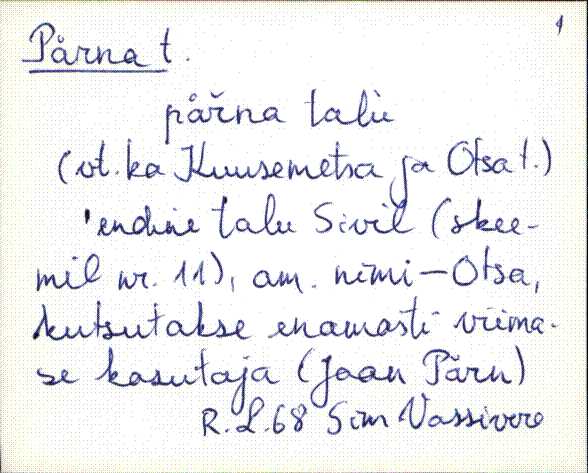 1
Pärna t.
pärna talu
(vt. ka Kuusemetsa ja Otsa t.)
'endine talu Sivil (skee-
mil nr. 11), am. nimi – Otsa,
kutsutakse enamasti viima-
se kasutaja (Jaan Pärn)
R. L. 68 Sim Vassivere